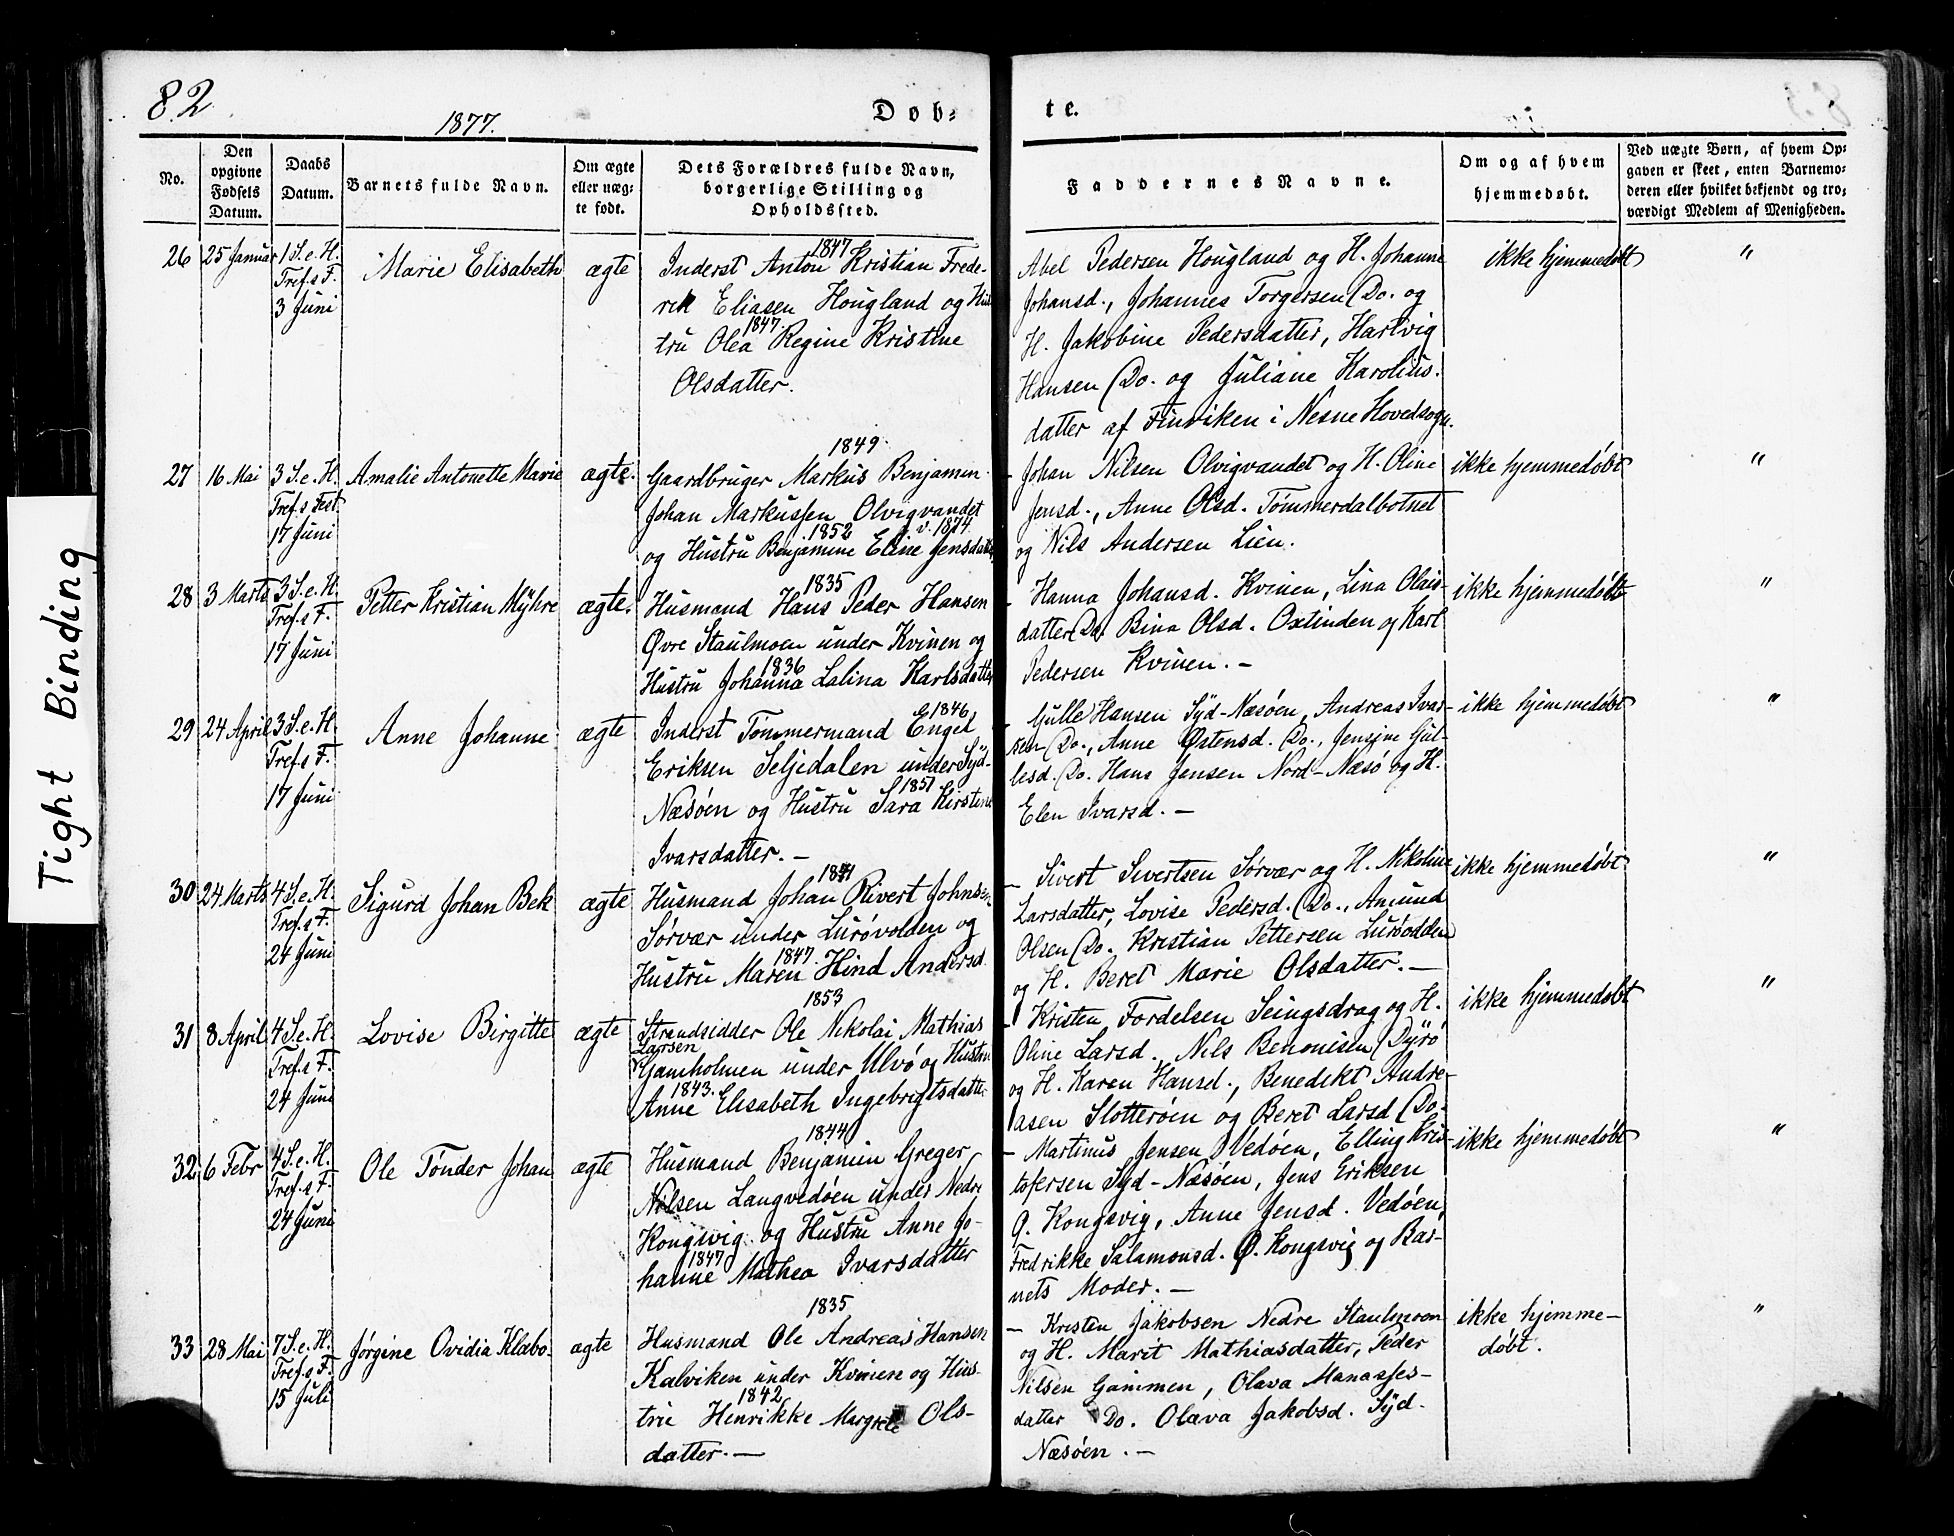 82
1877.
Døb-
te.
No.
Den opgivne Fødsels Datum.
Daabs Datum.
Barnets fulde Navn.
Om ægte eller uægte født.
Dets Forældres fulde Navn, borgerlige Stilling og Opholdssted.
Faddernes Navne.
Om og af hvem hjemmedøbt.
Ved uægte Børn, af hvem Opgaven er skeet, enten Barnemoderen eller hvilket bekjendt og troværdigt Medlem af Menigheden.
26 25 Januar 1 S. e. H. Tref.s F. 3 Juni
Marie Elisabeth ægte
1847
Inderst Anton Kristian Frede-
rik Eliasen Hougland og Hus-
1847.
tru Olea Regine Kristine
Olsdatter.
Abel Pedersen Hougland og H. Johanne
Johansd., Johannes Torgersen (Do. og
H. Jakobine Pedersdatter, Hartvig
Hansen (Do. og Juliane Karolius-
datter af Finviken i Nesne Hovedsogn.
ikke hjemmedøbt "
27 16 Mai 3 S. e. H. Tref.s Fest 17 Juni
Amalie Antonette Marie ægte.
1849.
Gaardbruger Markus Benjamin
Johan Markussen Olvigvandet
1852 v. 1874
og Hustru Benjamine Eline Jensdatter
- Johan Nilsen Olvigvandet og H. Oline
Jensd., Anne Olsd. Tømmerdalbotnet
og Nils Andersen Lien.
ikke hjemmedøbt "
28 3 Marts 3 S. e. H. Tref.s F. 17 Juni
Petter Kristian Myhre ægte.
1835
Husmand Hans Peder Hansen
Øvre Staulmoen under Kvinen og
1836
Hustru Johanna Lalina Karlsdatter
- Hanna Johansd. Kvinen, Lina Olais-
datter (Do. Bina Olsd. Oxtinden og Karl
Pedersen Kvinen. -
ikke hjemmedøbt "
29 24 April 3 S. e. H. Tref.s F. 17 Juni
Anne Johanne ægte
1846
Inderst Tømmermand Engel
Eriksen Seljedalen under Syd-
1851
Næsøen og Hustru Sara Kirstine
Ivarsdatter. -
- Gulle Hansen Syd-Næsøen, Andreas Ivar-
sen (Do., Anne Østensd. (Do., Jensine Gul-
lesd. (Do. Hans Jensen Nord-Næsø og H.
Elen Ivarsd. -
ikke hjemmedøbt "
30 24 Marts 4 S. e. H. Tref.s F. 24 Juni
Sigurd Johan Bek ægte
Husmand Johan Rivert Johnsen
Sørvær under Lurøvolden og
1847.
Hustru Maren Hind Andersd.
- Sivert Sivertsen Sørvær og H. Nikoline
Larsdatter, Lovise Pedersd. (Do., Amund
Olsen (Do. Kristian Pettersen Lurøodden
og H. Beret Marie Olsdatter. -
ikke hjemmedøbt "
31 8 April 4 S. e. H. Tref.s F. 24 Juni
Lovise Birgitte ægte
1853
Strandsidder Ole Nikolai Mathias
Larsen
Gamholmen under Ulvø og Hustru
1843.
Anne Elisabeth Ingebrigtsdatter
- Kristen Fordelsen Seingsdrag og H.
Oline Larsd. Nils Benonisen (Dyrø
og H. Karen Hansd., Benedikt Andre-
asen Slotterøen og Beret Larsd (Do.
ikke hjemmedøbt "
32 6 Febr 4 S. e. H. Tref.s F. 24 Juni
Ole Tønder Johan ægte
1844
Husmand Benjamin Greger
Nilsen Langvedøen under Nedre
Kongsvig og Hustru Anne Jo-
1847
hanne Mathea Ivarsdatter
- Martinus Jensen Vedøen, Elling Kris-
tofersen Syd-Næsøen, Jens Eriksen
Ø. Kongsvig, Anne Jensd. Vedøen,
Fredrikke Salamonsd. Ø. Kongsvig og Bar-
nets Moder. -
ikke hjemmedøbt "
33 28 Mai 7 S. e. H. Tref.s F. 15 Juli
Jørgine Ovidia Klæbo- ægte
1835
Husmand Ole Andreas Hansen
Kalviken under Kvinen og Hus-
1842
tru Henrikke Margrete Ols-
datter. -
- Kristen Jakobsen Nedre Staulmoen
og H. Marit Mathiasdatter, Peder
Nilsen Gammen, Olava Manasses-
datter Do. Olava Jakobsd. Syd-
Næsøen. -
ikke hjemme-
døbt. "
Tight Binding